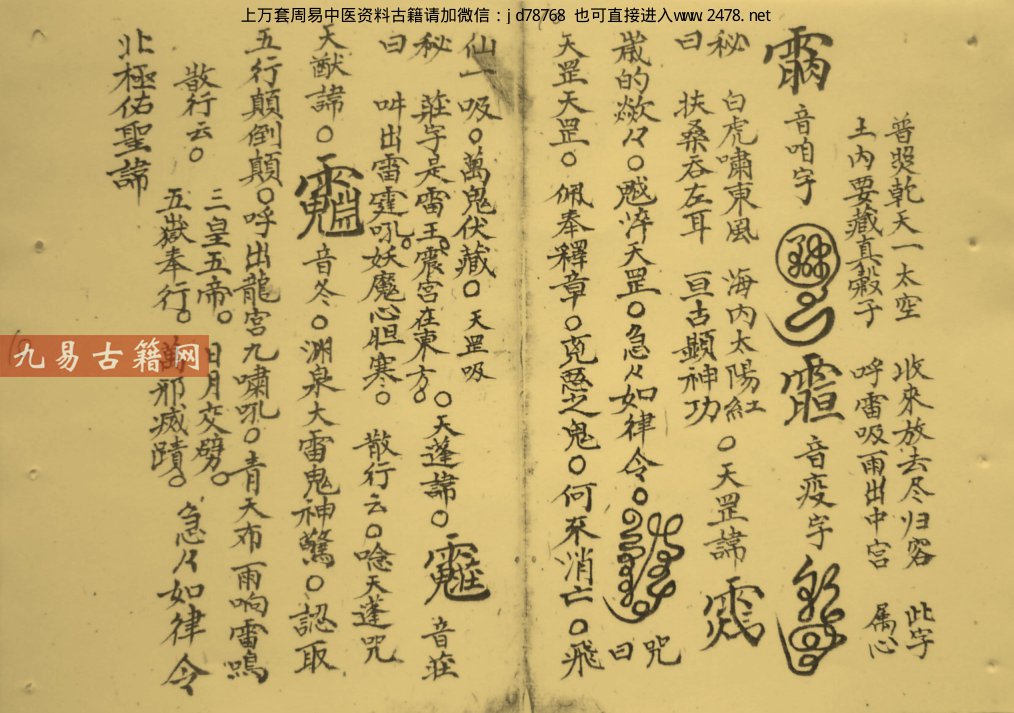 上万套周易中医资料古籍请加微信：jd78768 也可直接进入www.2478.net
普照乾天一太空 收來放去尽归容 此字
土内要藏真穀子 呼雷吸雨出中宫 属心
音咱字 音疫字
秘 白虎嘯東風 海内太陽紅 ○天罡諱
曰 扶桑吞左耳 亘古顯神功
歲的 ○ 天罡○急々如律令○ 咒
曰
天罡天罡○佩奉釋章○ 惡之鬼○何不消亡○飛
仙一吸○萬鬼伏藏○天罡吸
秘 莊字是雷王 震宮在東方○ ○天蓬諱○ 音莊
曰 吽出雷霆吼 妖魔心胆寒○ 散行云○唸天蓬咒
天猷諱○ 音冬○渊泉大雷鬼神驚○認取
五行顛倒顛○呼出龍宮九嘯吼○青天布雨响雷鳴
散行云○ 三皇五帝○ 日月交劈○
五嶽奉行○ 萬邪滅蹟○ 急々如律令
北極佑聖諱
九易古籍网